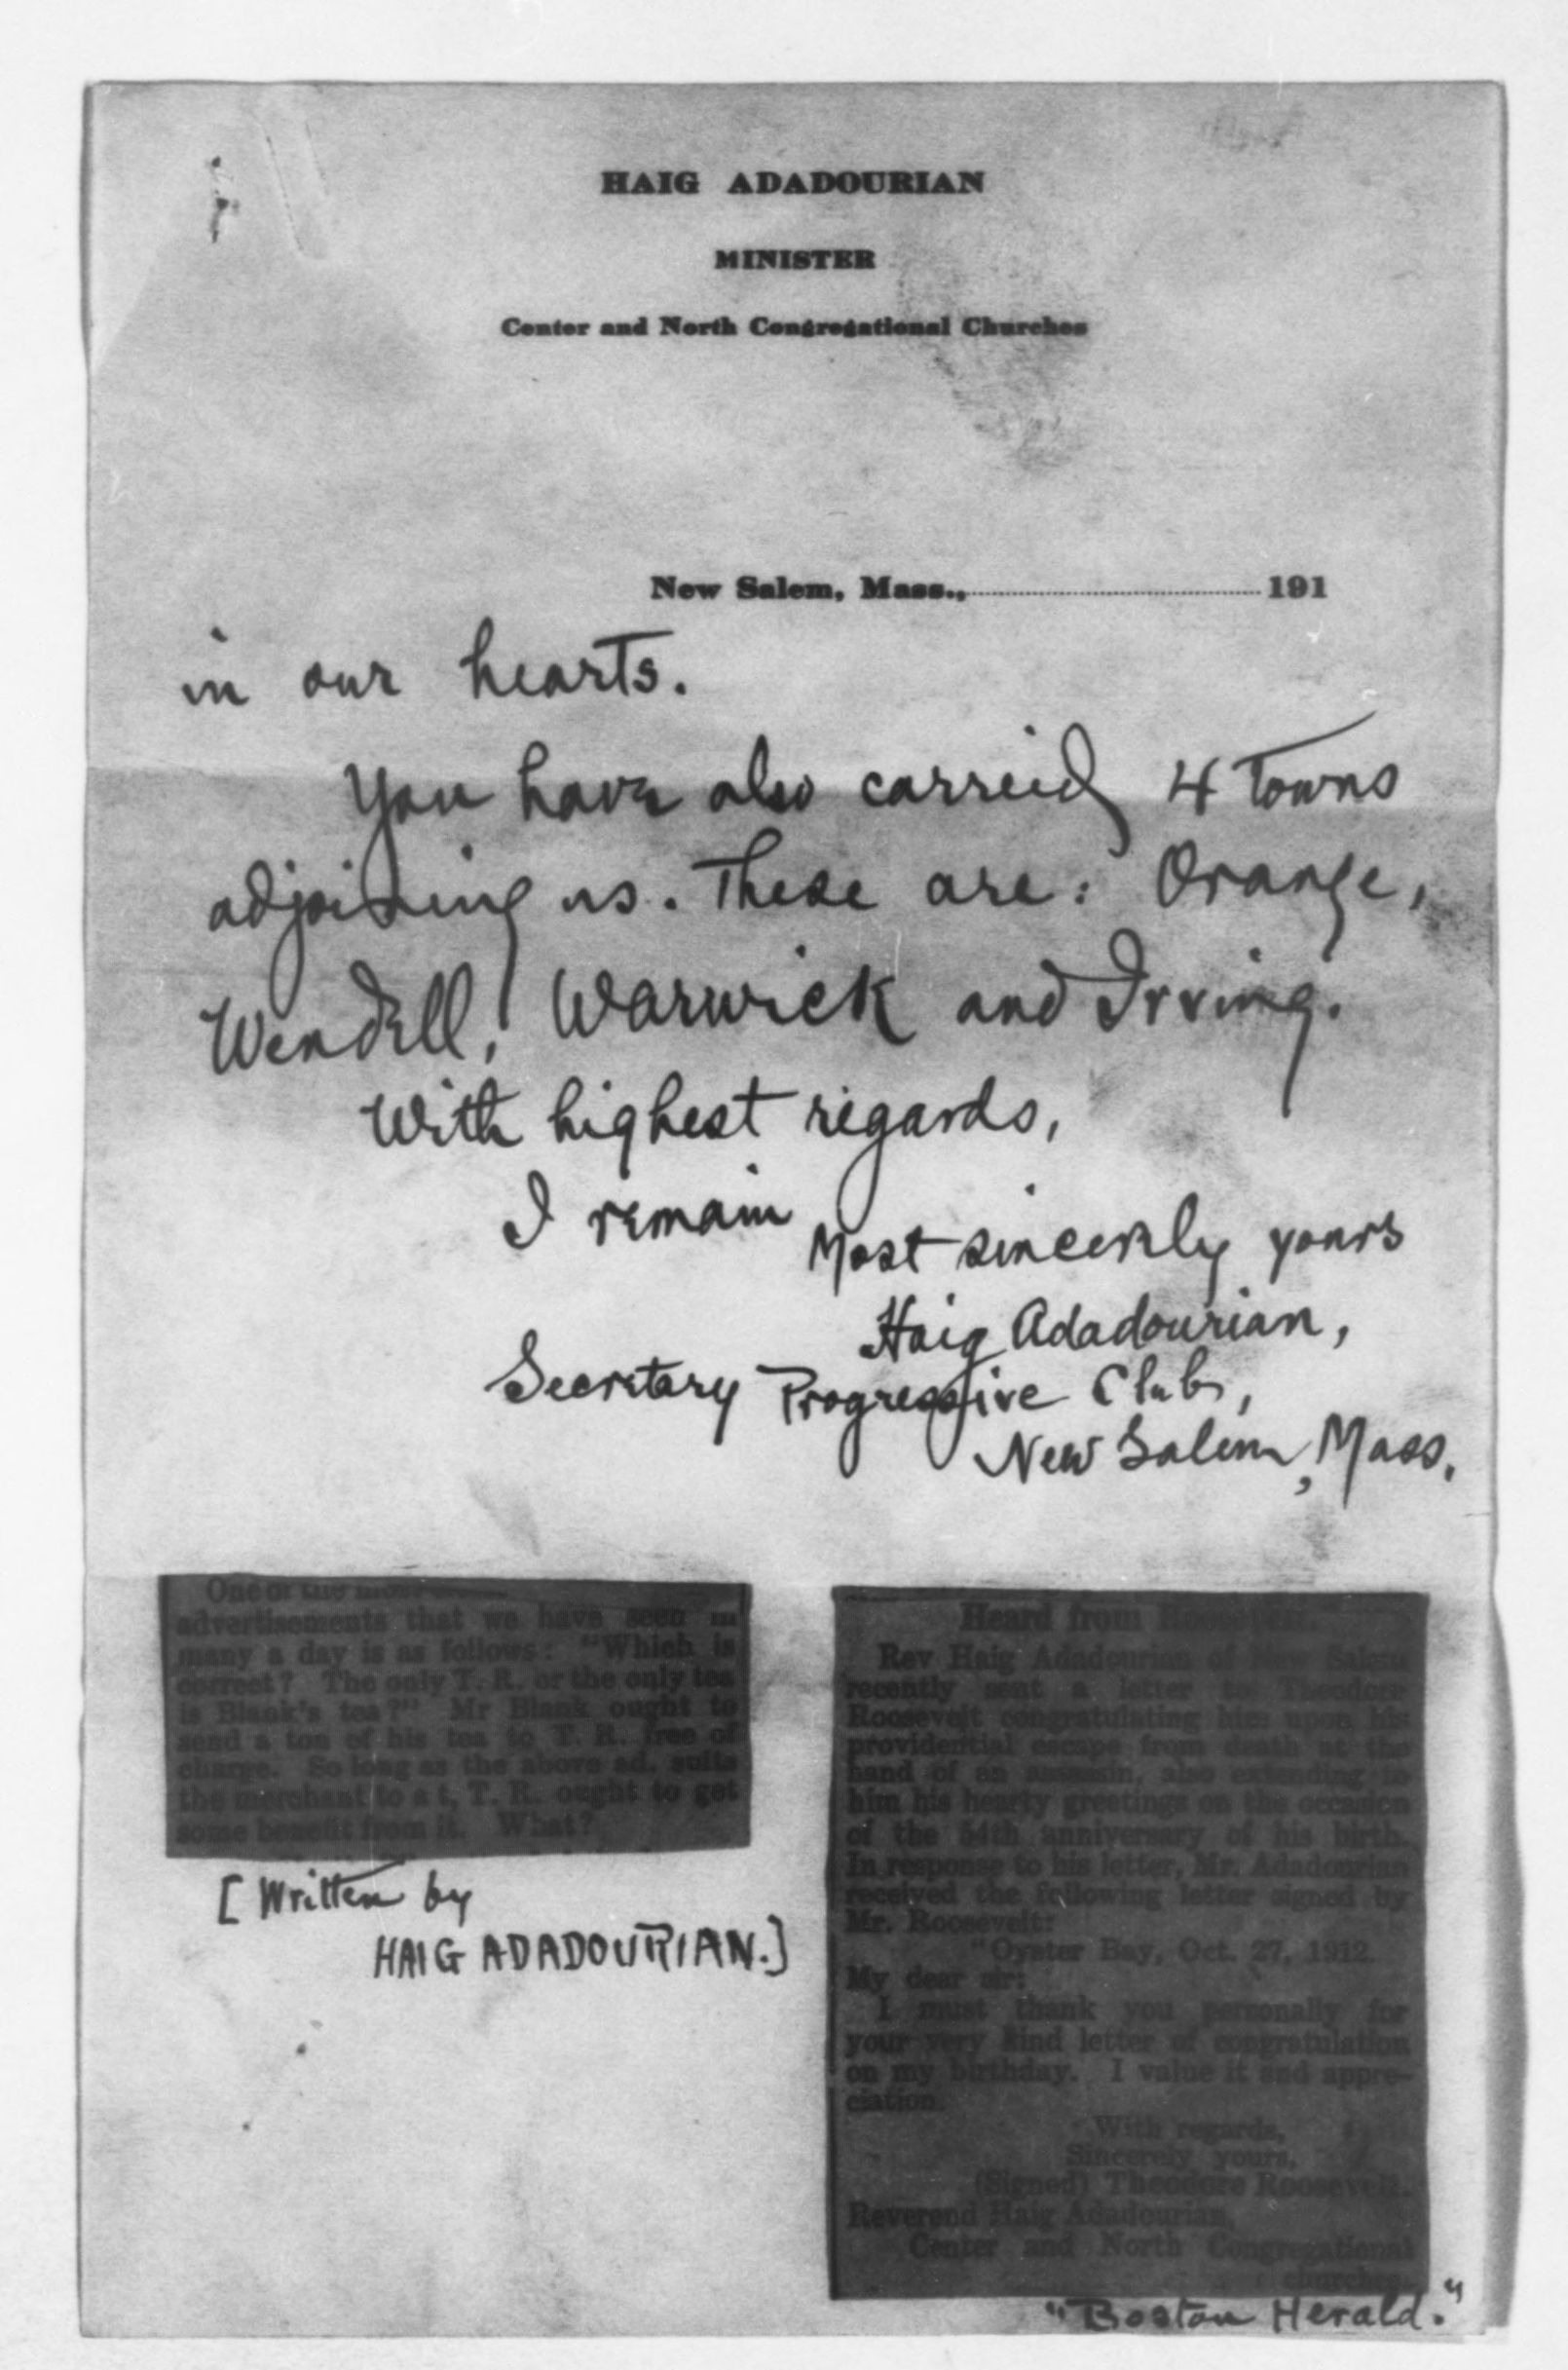 HAIG ADADOURIAN
MINISTER
Center and North Congregational Churches
New Salem, Mass., 191
in our hearts.
You have also carreid 4 towns
adjoining us. These are: Orange,
Wendell, Warwick and Irving.
With highest regards,
I remain
Most sincerely yours
Haig Adadourian,
Secretary Progressive Club,
New Salem, Mass.
One of the most
advertisements that we have seen in
many a day is as follows: "Which is
correct? The only T. R. or the only tea
is Blank's tea?" Mr Blank ought to
send a ton of his tea to T. R. free of
charge. So long as the above ad. suits
the merchant to a t, T. R. ought to get
some benefit from it. What?
[Written by
HAIG ADADOURIAN.]
Heard from Roosevelt.
Rev Haig Adadourian of New Salem
recently sent a letter to Theodore
Roosevelt congratulating him upon his
providential escape from death at the
hand of an assassin, also extending to
him his hearty greetings on the occasion
of the 54th anniversary of his birth.
In response to his letter, Mr. Adadourian
received the following letter signed by
Mr. Roosevelt:
"Oyster Bay, Oct. 27, 1912.
My dear sir:
I must thank you personally for
your very kind letter of congratulation
on my birthday. I value it and appre-
ciation.
With regards,
Sincerely yours,
(Signed) Theodore Roosevelt.
Reverend Haig Adadourian,
Center and North Congregational
churches.
"Boston Herald."